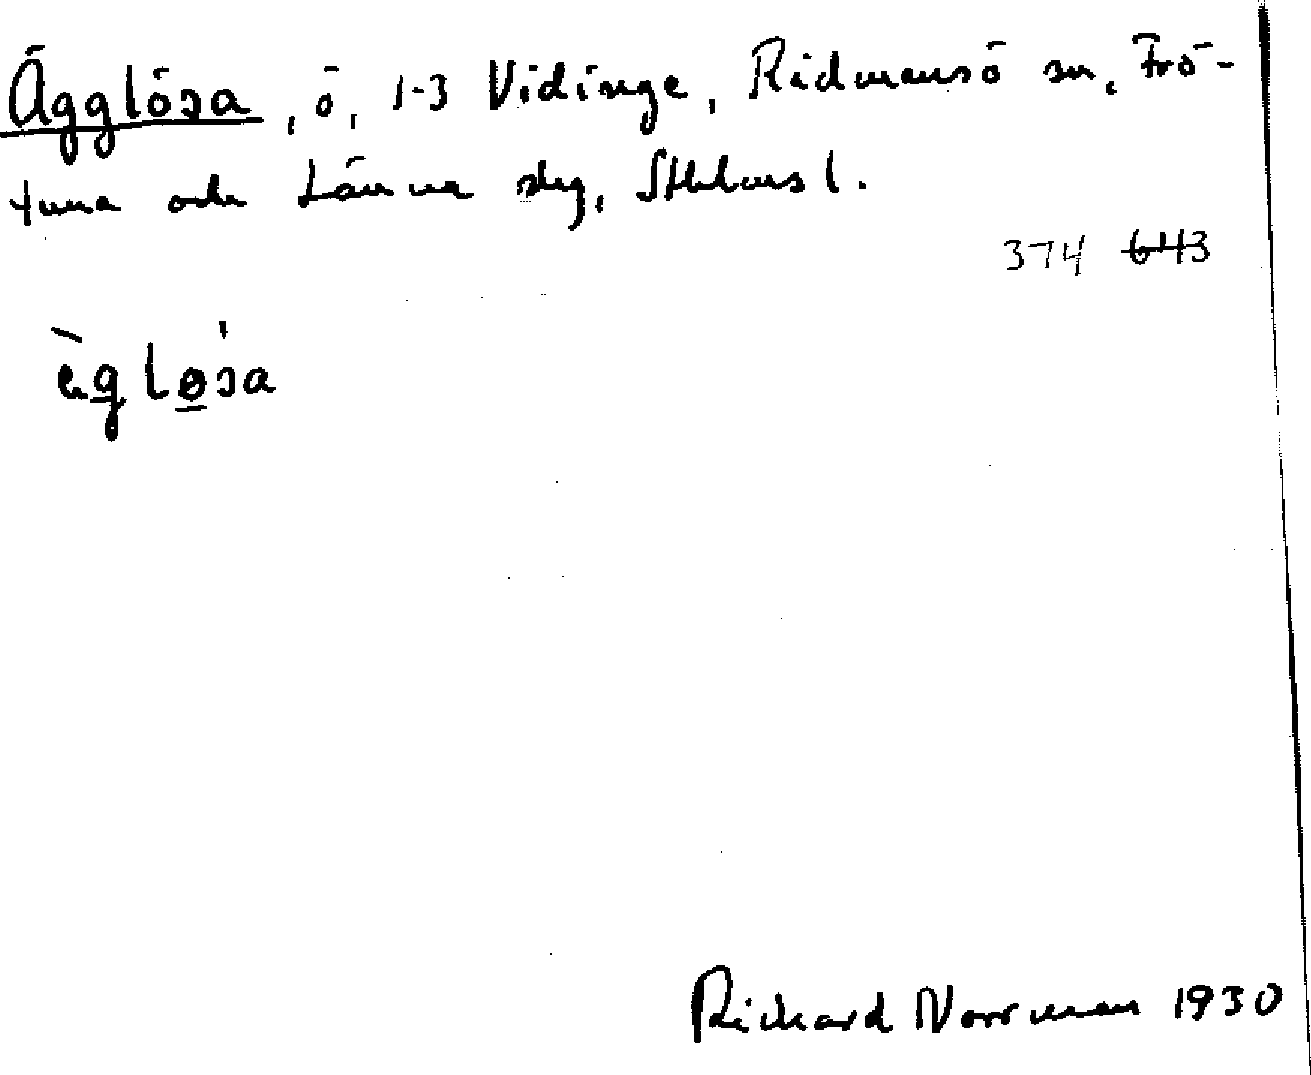 Ägglösa, ö, 1-3 Vidinge, Rådmansö sn, Frö-
tuna och Länna skg, Sthlms l.
374 643
äglösa
Rickard Norrman 1930